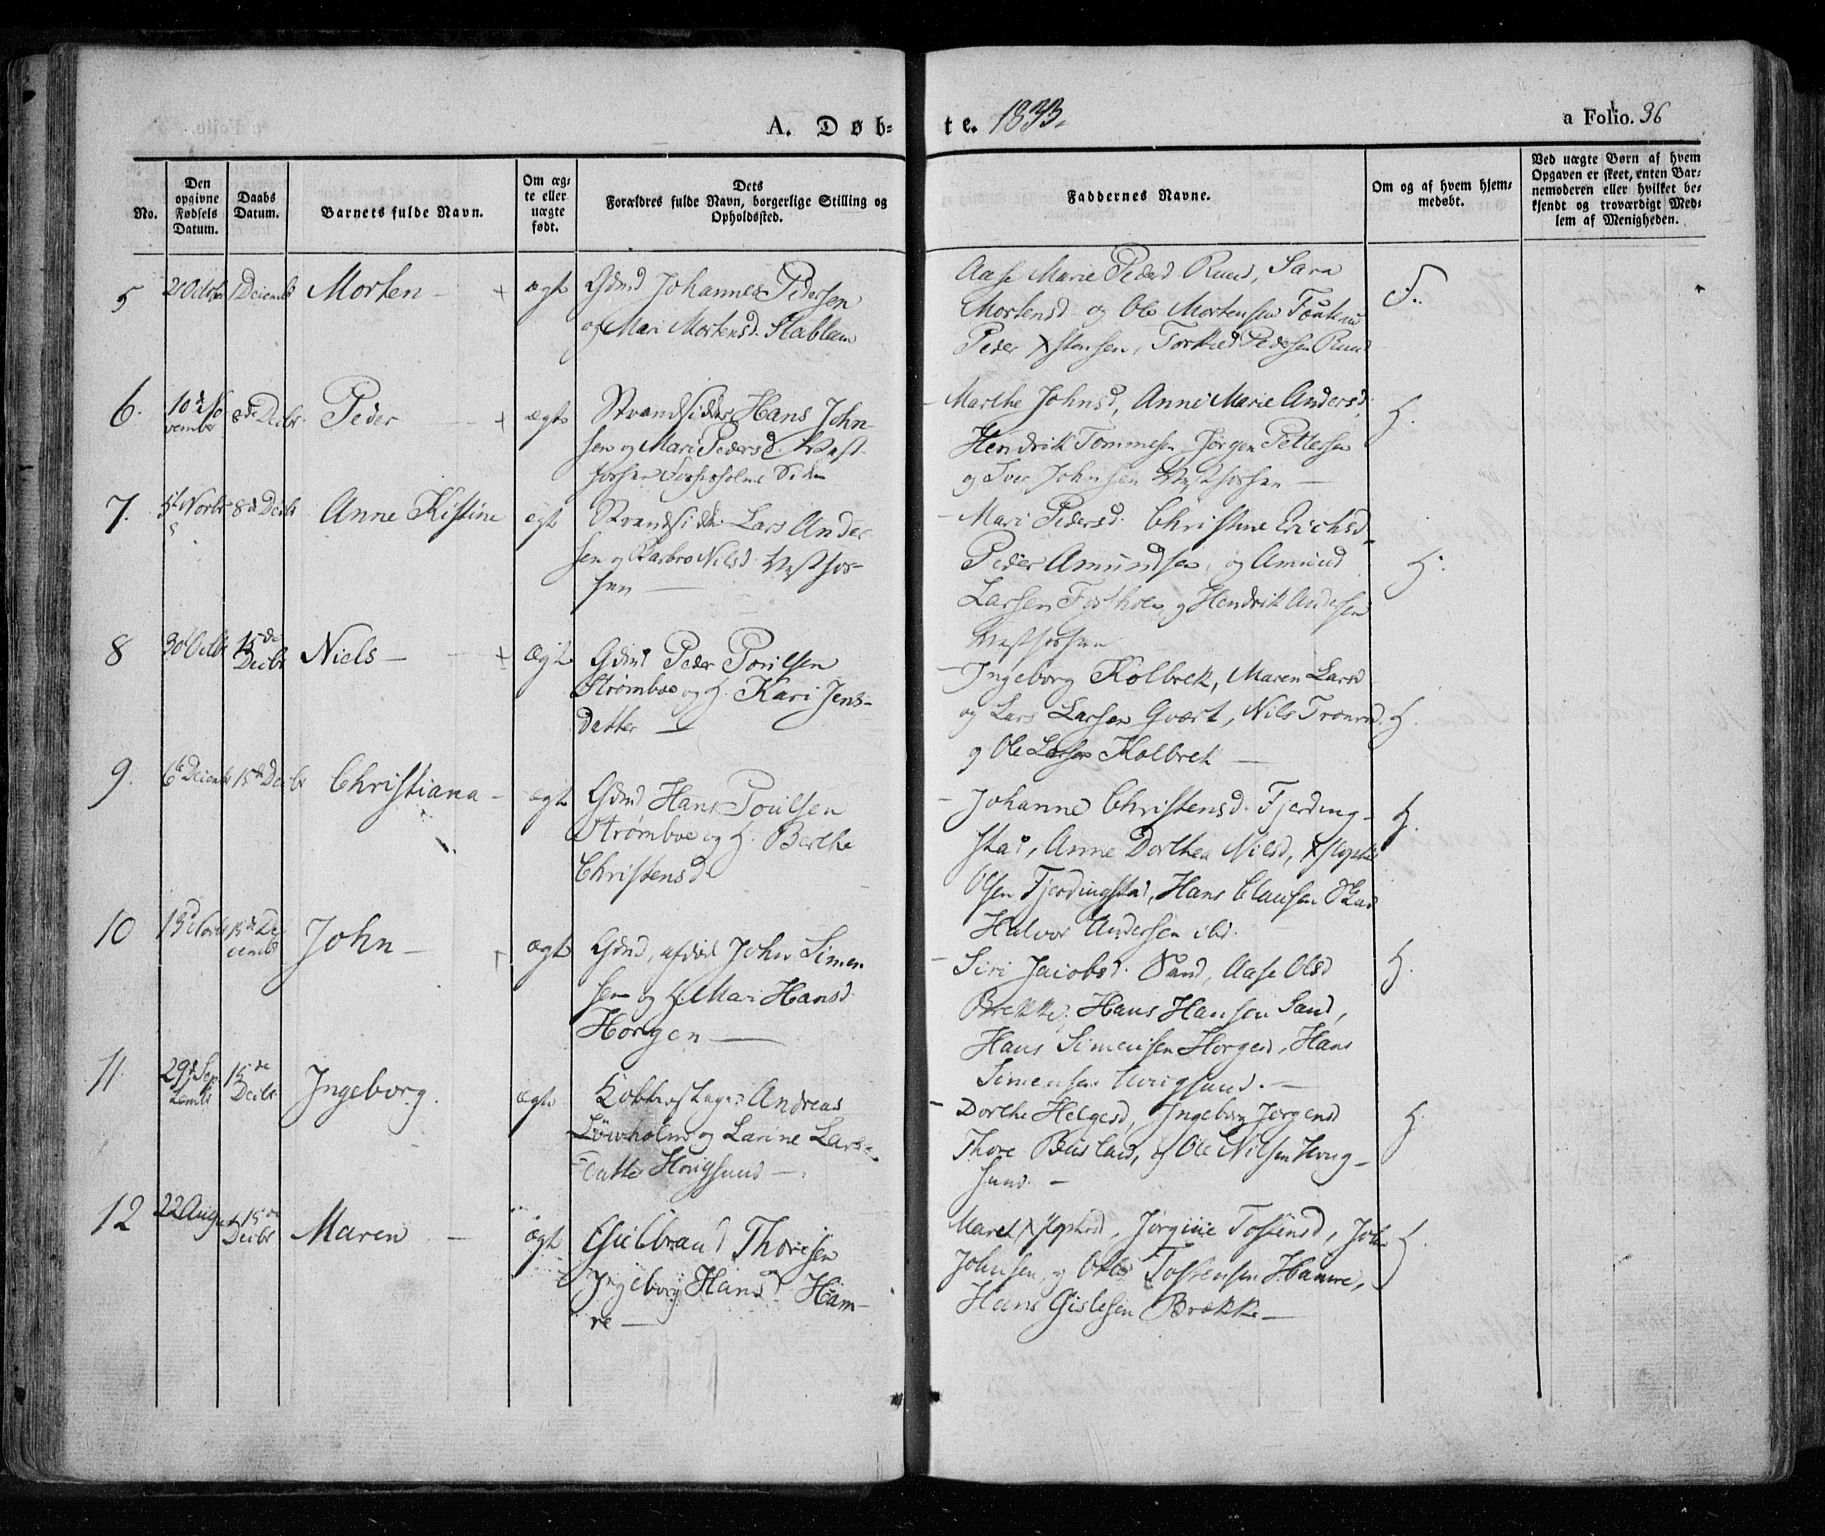 A. Døb-
te. 1833.
a Folio. 36
No.
Den opgivne Fødsels Datum.
Daabs Datum.
Barnets fulde Navn.
Om æg- te eller uægte født.
Dets Forældres fulde Navn, borgerlige Stilling og Opholdssted.
Faddernes Navne.
Om og af hvem hjem- medøbt.
Ved uægte Børn af hvem Opgaven er skeet, enten Bar- nemoderen eller hvilket be- kjendt og troværdigt Med- lem af Menigheden.
5 Morten ægt Gdmd Johannes Pedersen
og Mari Mortensd. Stablum
Aase Marie Pedersd Ruud, Sara
Mortensd og Ole Mortensen
Peder Xstensen, Torkild Pedersen Ruud
6. 10d No
vember 8de Decbr. Peder ægte Strandsidder Hans John-
sen og Mari Pedersd. Vest-
fossen Fossesholms Siden
Marthe Johnsd, Anne Marie Andersd.
Hendrik Tommesen Jørgen Pettersen
og Iver Johnsen Vestfossen —
H.
7. Novbr 8d Decbr Anne Kistine egt Strandsidder Lars Ander-
sen og Barbro Nilsd. Vestfos-
sen —
Mari Pedersd. Christine Erichsd
Peder Amundsen, og Amund
Larsen Fosholm og Hendrik Andersen
Vestfossen
H.
8 30 Octbr 15de
Decbr Niels — ægt Gdmd Peder Poulsen
Strømboe og H. Kari Jens-
datter —
Ingeborg Kolbrek, Maren Larsd
og Lars Larsen Qvært, Nils
og Ole Larsen Kolbrek —
H.
9. 6te Decembr 15de Decbr Christiana — ægt Gdmd Hans Poulsen
Strømboe og H. Berthe
Christensd
Johanne Christensd. Fjerding-
stad, Anne Dorthea Nilsd,
Olsen Fjerdingstad, Hans Clausen
Halvor Andersen ibd.
H.
10 13d Novbr 15de De-
cemb John — ægt Gdmd, afdød John Simen-
sen og H. Mari Hansd.
Horgen —
Siri Jacobsd. Sand, Aase Olsd
Brekke, Hans Hansen Sand,
Hans Simensen Horgen, Hans
Simensen Hougsund. —
H.
11. 29d Sep-
tembr 15de
Decbr Ingeborg. ægte Andreas
Løvholm og Larine Lars-
datter Hougsund —
Dorthe Helgesd, Ingeborg Jørgensd
Thore Busland, og Ole Nilsen Houg-
sund. —
H
12 22 Aug 15de
Decbr Maren — ægt Gulbrand Thoresen
Ingeborg Hansd Ham-
re —
Maret Xstophersd, Jørgine Tostensd, John
Johnsen, og Tostensen Hamre,
Hans Gislesen Brekke —
H.